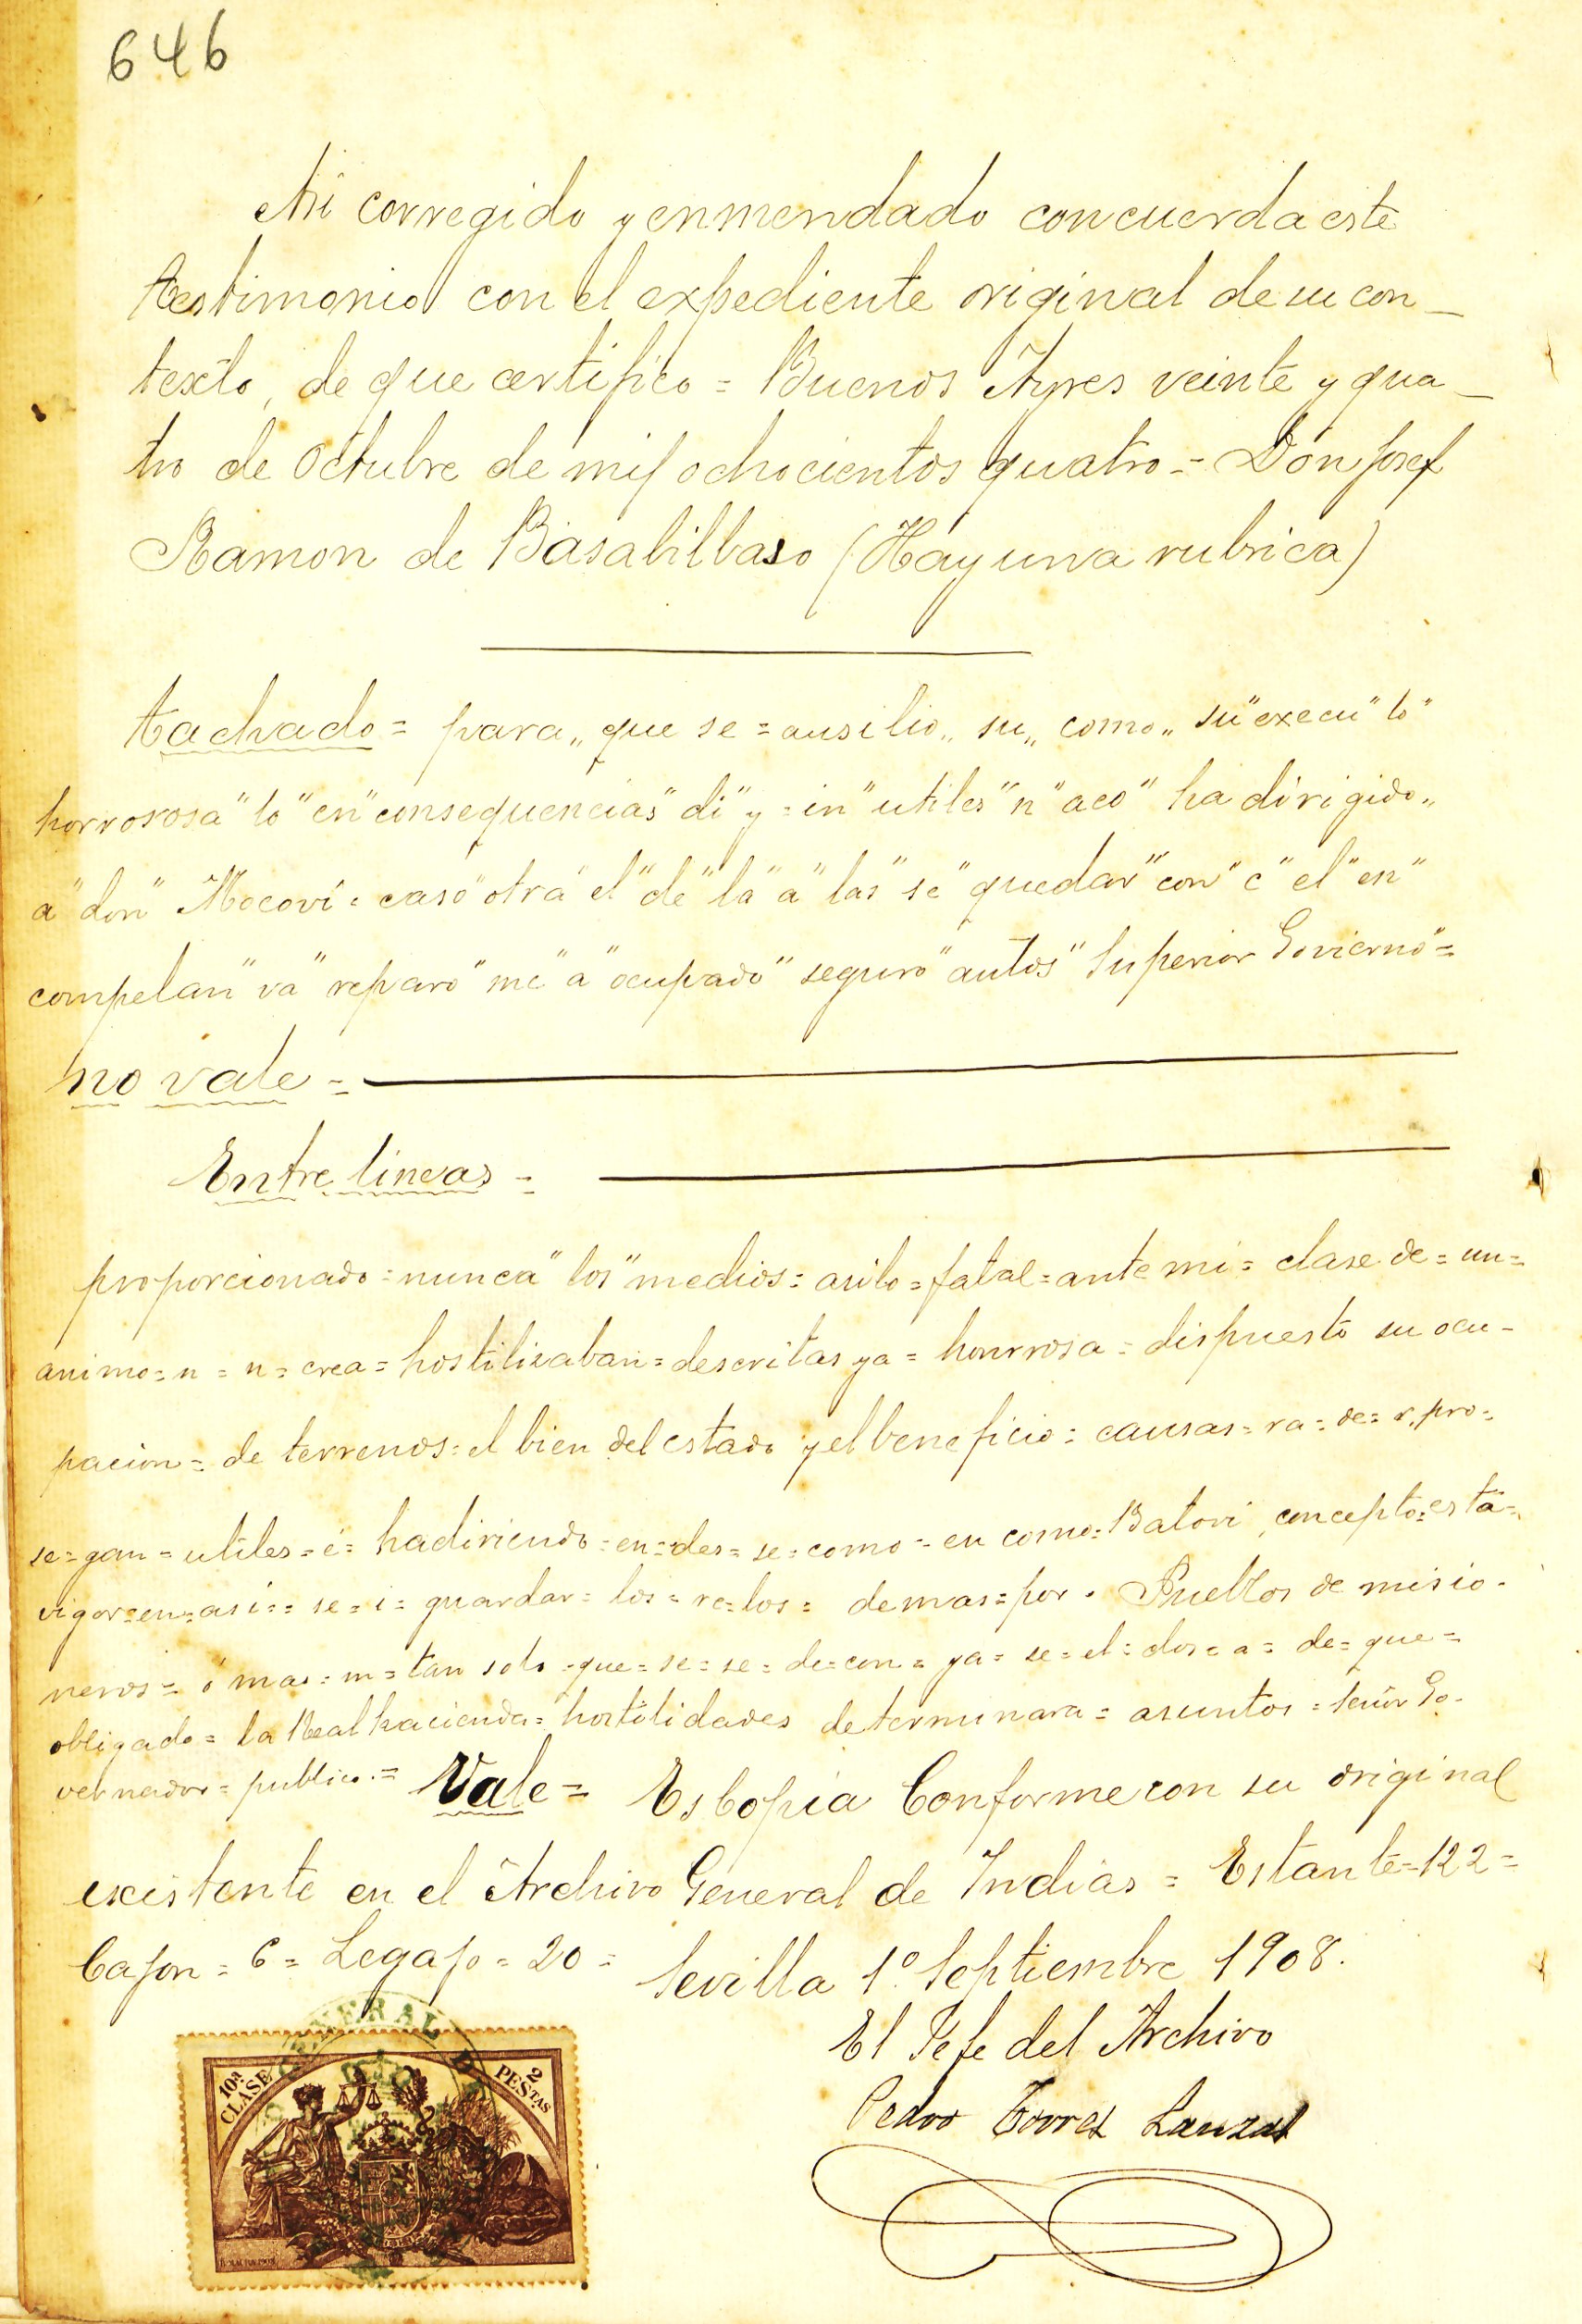 646
Asi corregido y enmendado concuerda este
testimonio con el expediente original de su con_
texto, de que certifico = Buenos Ayres veinte y qua_
tro de Octubre de mil ochocientos quatro = Don Josef
Ramon de Basabilbaso (Hay una rubrica)
tachado = para „ que se = ausilio „ su „ como „ su " execu " lo "
horrorosa " lo " en " consequencias " di " y = in " utiles " n " aco " ha dirigido „
a " don " Mocoví = caso " otra " el " de " la " a " las " se " quedar " con " c " el " en "
compelan " va " reparo " me " a " ocupado " seguro " autos " Superior Govierno " =
no vale =
Entre lineas =
proporcionado = nunca " los " medios = asilo = fatal = ante mi = clase de = un =
animo = n = n = crea = hostilizaban = descritas ya = honrrosa = dispuesto su ocu-
pacion = de terrenos = el bien del estado y el beneficio = causas = ra = de = r. pro =
se = gan = utiles = é = hadiriendo = en = des = se = como = en como = Batori, concepto = esta =
vigor = en = asi = = se = i = guardar = los = re = los = demas = por = Pueblos de misio-
neros = ó mas = m = tan solo = que = se = se = de = con = ya = se = el = dos = a = de = que =
obligado = la Real hacienda = hostilidades determinara = asuntos = señor Go-
vernador = publico = Vale = Es Copia Conforme con su original
existente en el Archivo General de Indias = Estante = 122 =
Cajon = 6 = Legajo = 20 = Sevilla 1º Septiembre 1908.
El Jefe del Archivo
Pedro Torres Lanzas
GENERAL
10ª CLASE
2 PESTAS